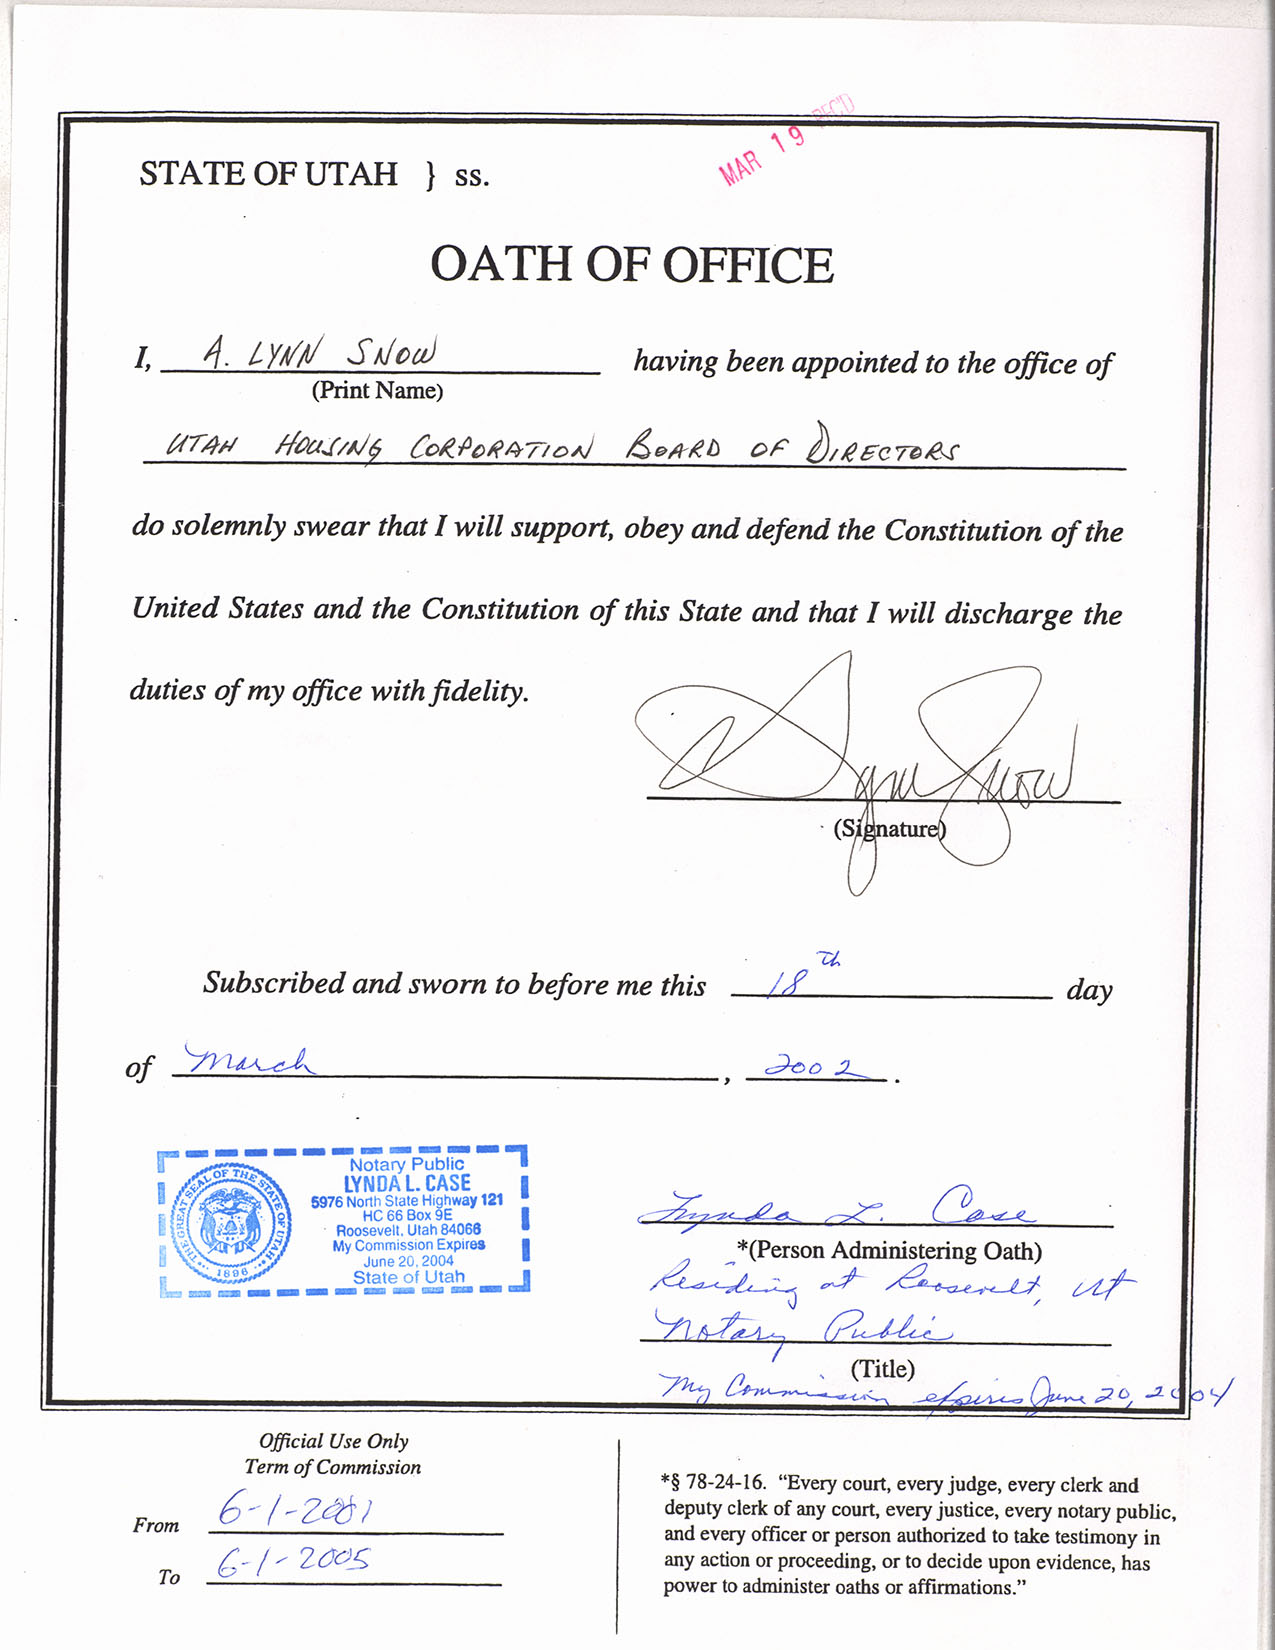 MAR 19 REC'D
STATE OF UTAH } ss.
OATH OF OFFICE
I, A. LYNN SNOW having been appointed to the office of
(Print Name)
UTAH HOUSING CORPORATION BOARD OF DIRECTORS
do solemnly swear that I will support, obey and defend the Constitution of the
United States and the Constitution of this State and that I will discharge the
duties of my office with fidelity.
A Lynn Snow
(Signature)
Subscribed and sworn to before me this 18th day
of March, 2002.
Notary Public
LYNDA L. CASE
5976 North State Highway 121
HC 66 Box 9E
Roosevelt, Utah 84066
My Commission Expires
June 20, 2004
State of Utah
THE GREAT SEAL OF THE STATE OF UTAH
1896
Lynda L. Case
*(Person Administering Oath)
Residing at Roosevelt, Ut
Notary Public
(Title)
My Commission expires June 20, 2004
Official Use Only
Term of Commission
From 6-1-2001
To 6-1-2005
*§ 78-24-16. “Every court, every judge, every clerk and
deputy clerk of any court, every justice, every notary public,
and every officer or person authorized to take testimony in
any action or proceeding, or to decide upon evidence, has
power to administer oaths or affirmations.”